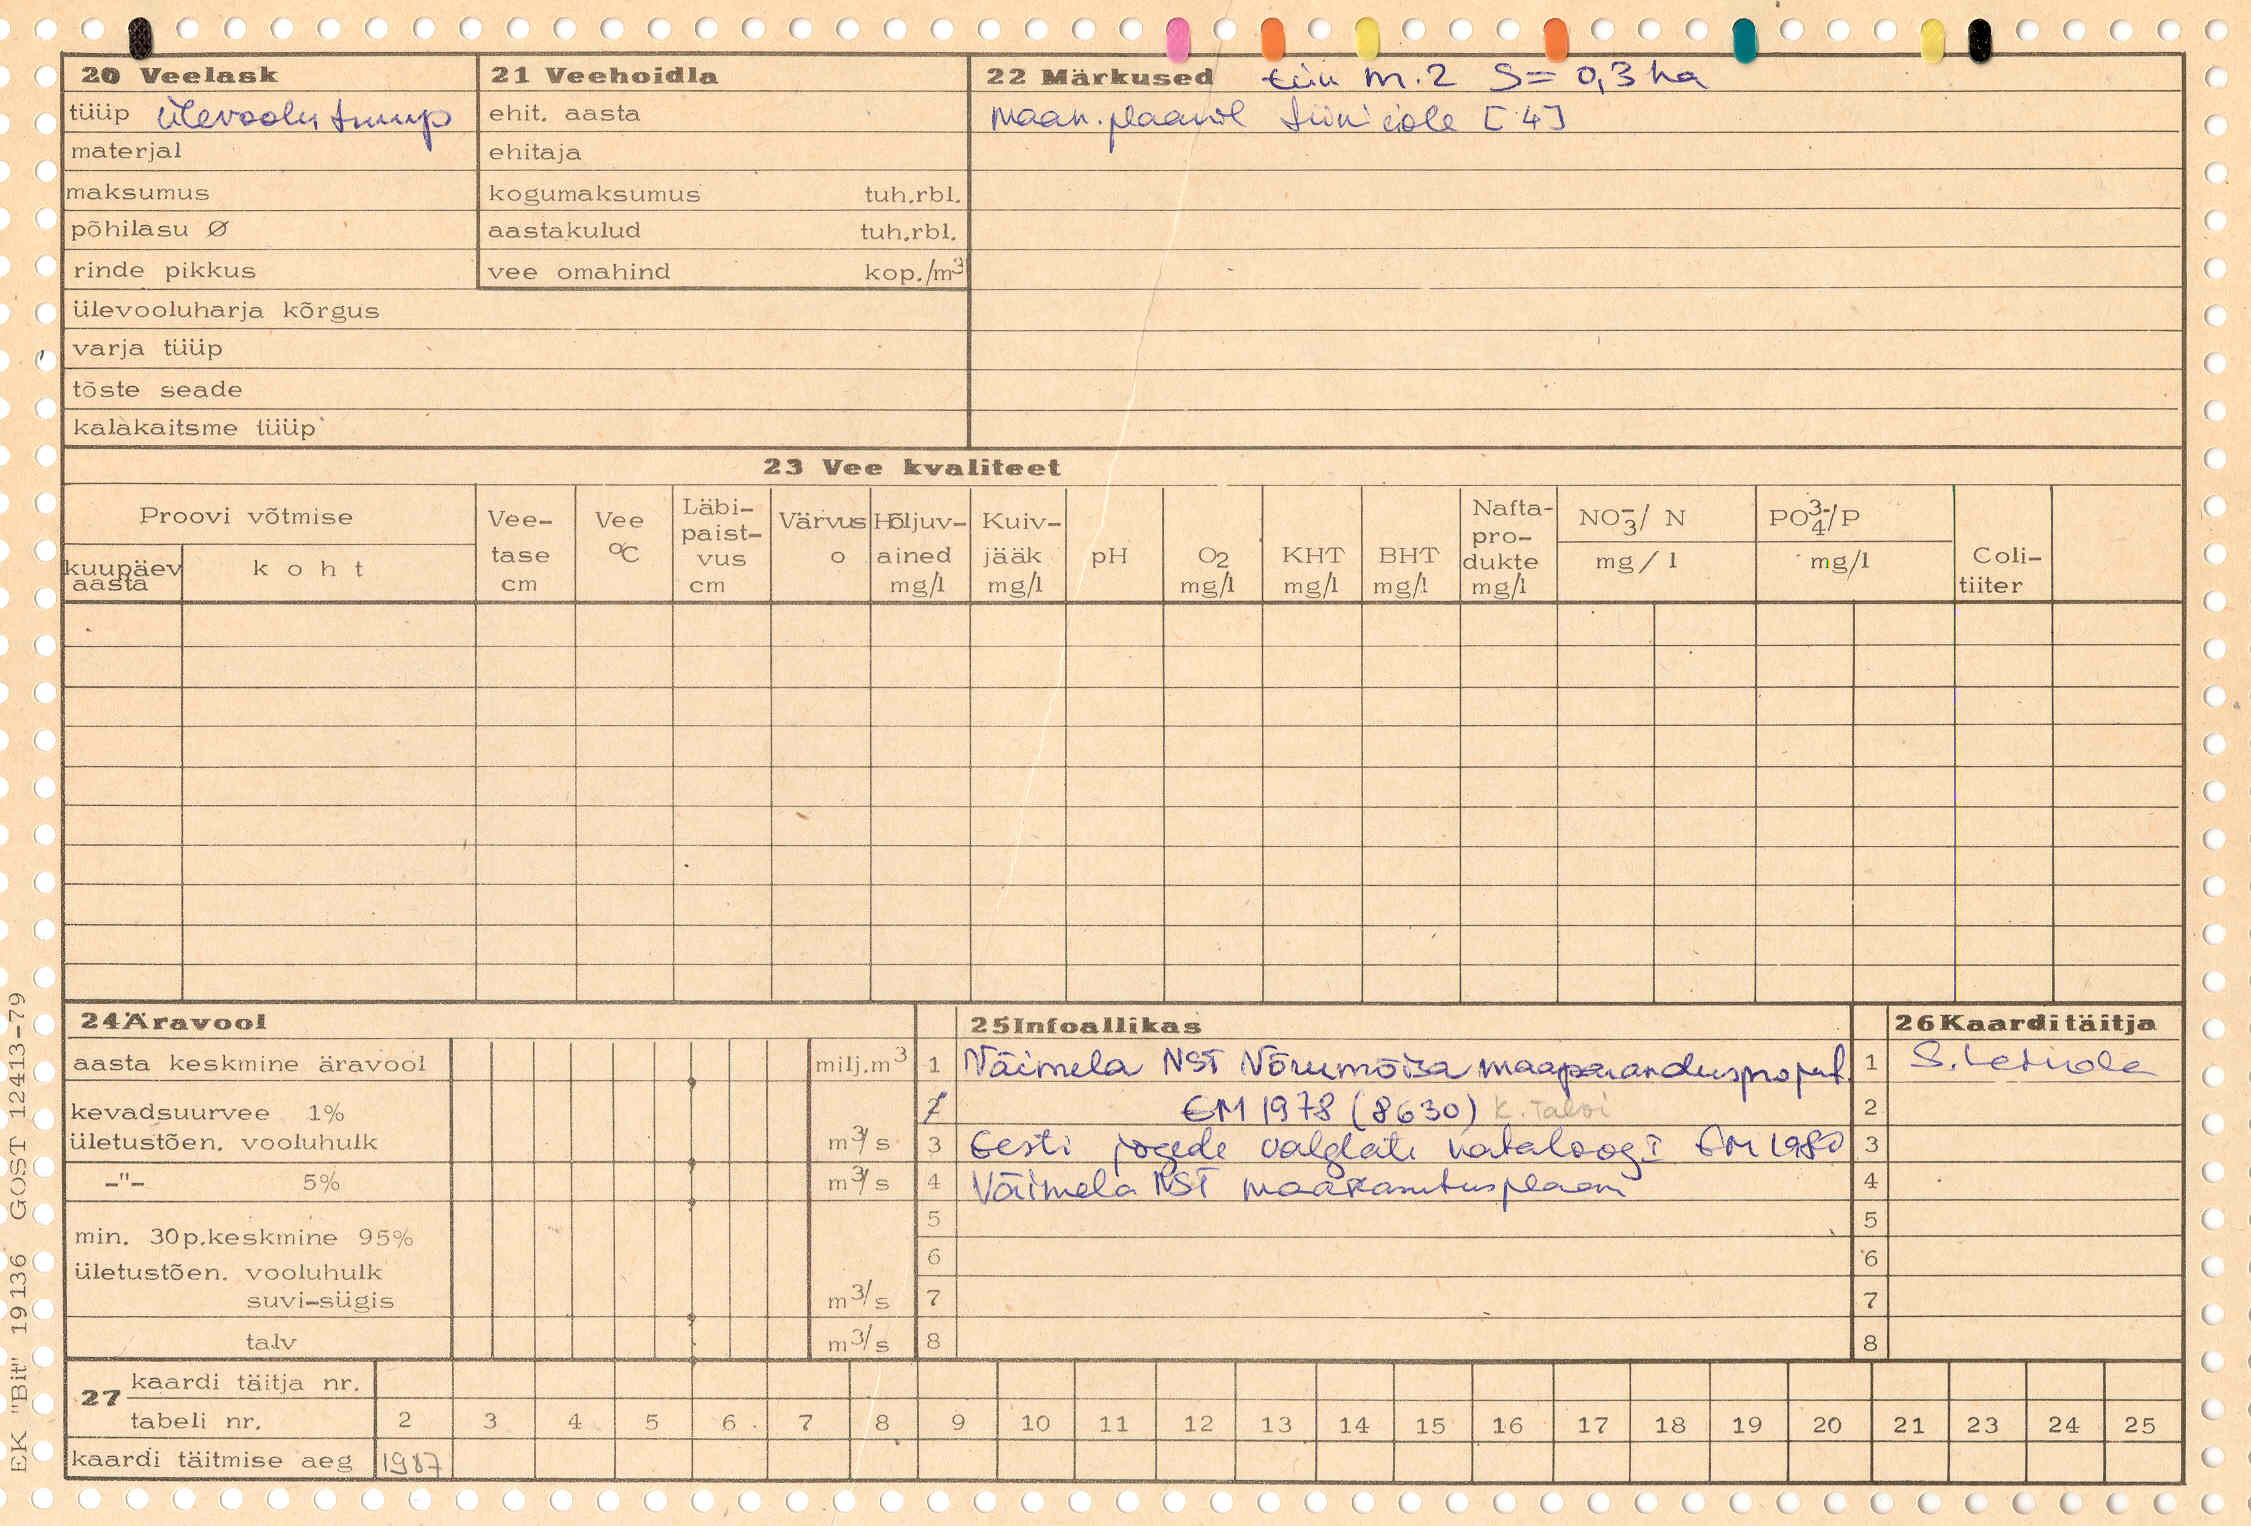 20 Veelask
tüüp ülevoolu tüüp
materjal
maksumus
põhilasu Ø
rinde pikkus
ülevooluharja kõrgus
varja tüüp
tõste seade
kalakaitsme tüüp
21 Veehoidla
ehit. aasta
ehitaja
kogumaksumus tuh.rbl.
aastakulud tuh.rbl.
vee omahind kop./m³
22 Märkused tiin nr. 2 S= 0,3 ha
maak. plaanil tiini eiole [4]
23 Vee kvaliteet
Proovi võtmise
kuupäev aasta
koht
Vee-tase cm
Vee °C
Läbi-paist-vus cm
Värvus o
Hõljuv-ained mg/l
Kuiv-jääk mg/l
pH
O₂ mg/l
KHT mg/l
BHT mg/l
Nafta-pro-dukte mg/l
NO₃⁻/ N mg/l
PO₄³⁻/P mg/l
Coli-tiiter
24 Äravool
aasta keskmine äravool milj.m³
kevadsuurvee 1%
ületustõen. vooluhulk m³/s
-"- 5% m³/s
min. 30p.keskmine 95%
ületustõen. vooluhulk
suvi-sügis m³/s
talv m³/s
25 Infoallikas
1 Väimela NST Nõrumõisa maaparandusprojekt.
2 EM 1978 (8630) K. Talvi
3 Eesti jogede valglate kataloog I EM 1980
4 Väimela NST maakasutusplaan
5
6
7
8
26 Kaarditäitja
1 S.
2
3
4
5
6
7
8
27 kaardi täitja nr.
tabeli nr. 2 3 4 5 6 7 8 9 10 11 12 13 14 15 16 17 18 19 20 21 23 24 25
kaardi täitmise aeg 1987
EK "Bit" 19136 GOST 12413-79